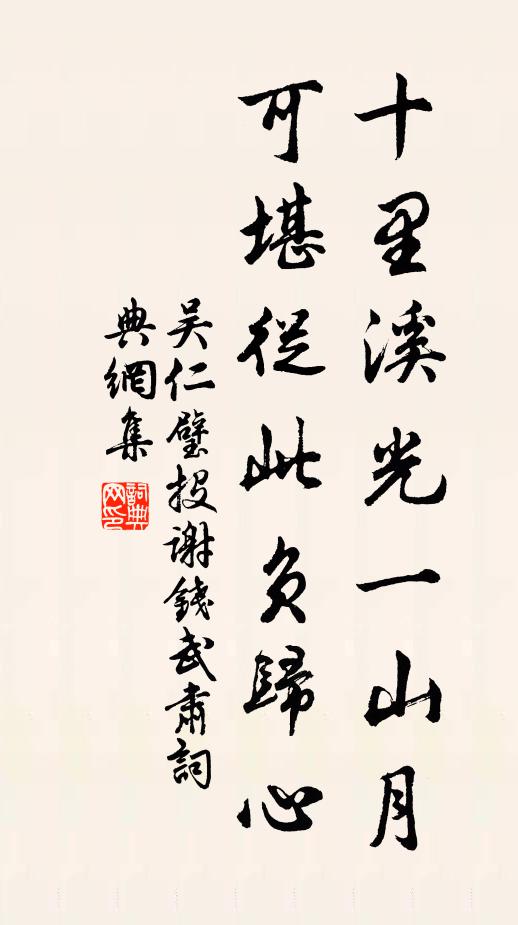 十里溪光一山月
可堪從此負歸心
吳仁璧投謝錢武肅詞
典網集
詞典
网印